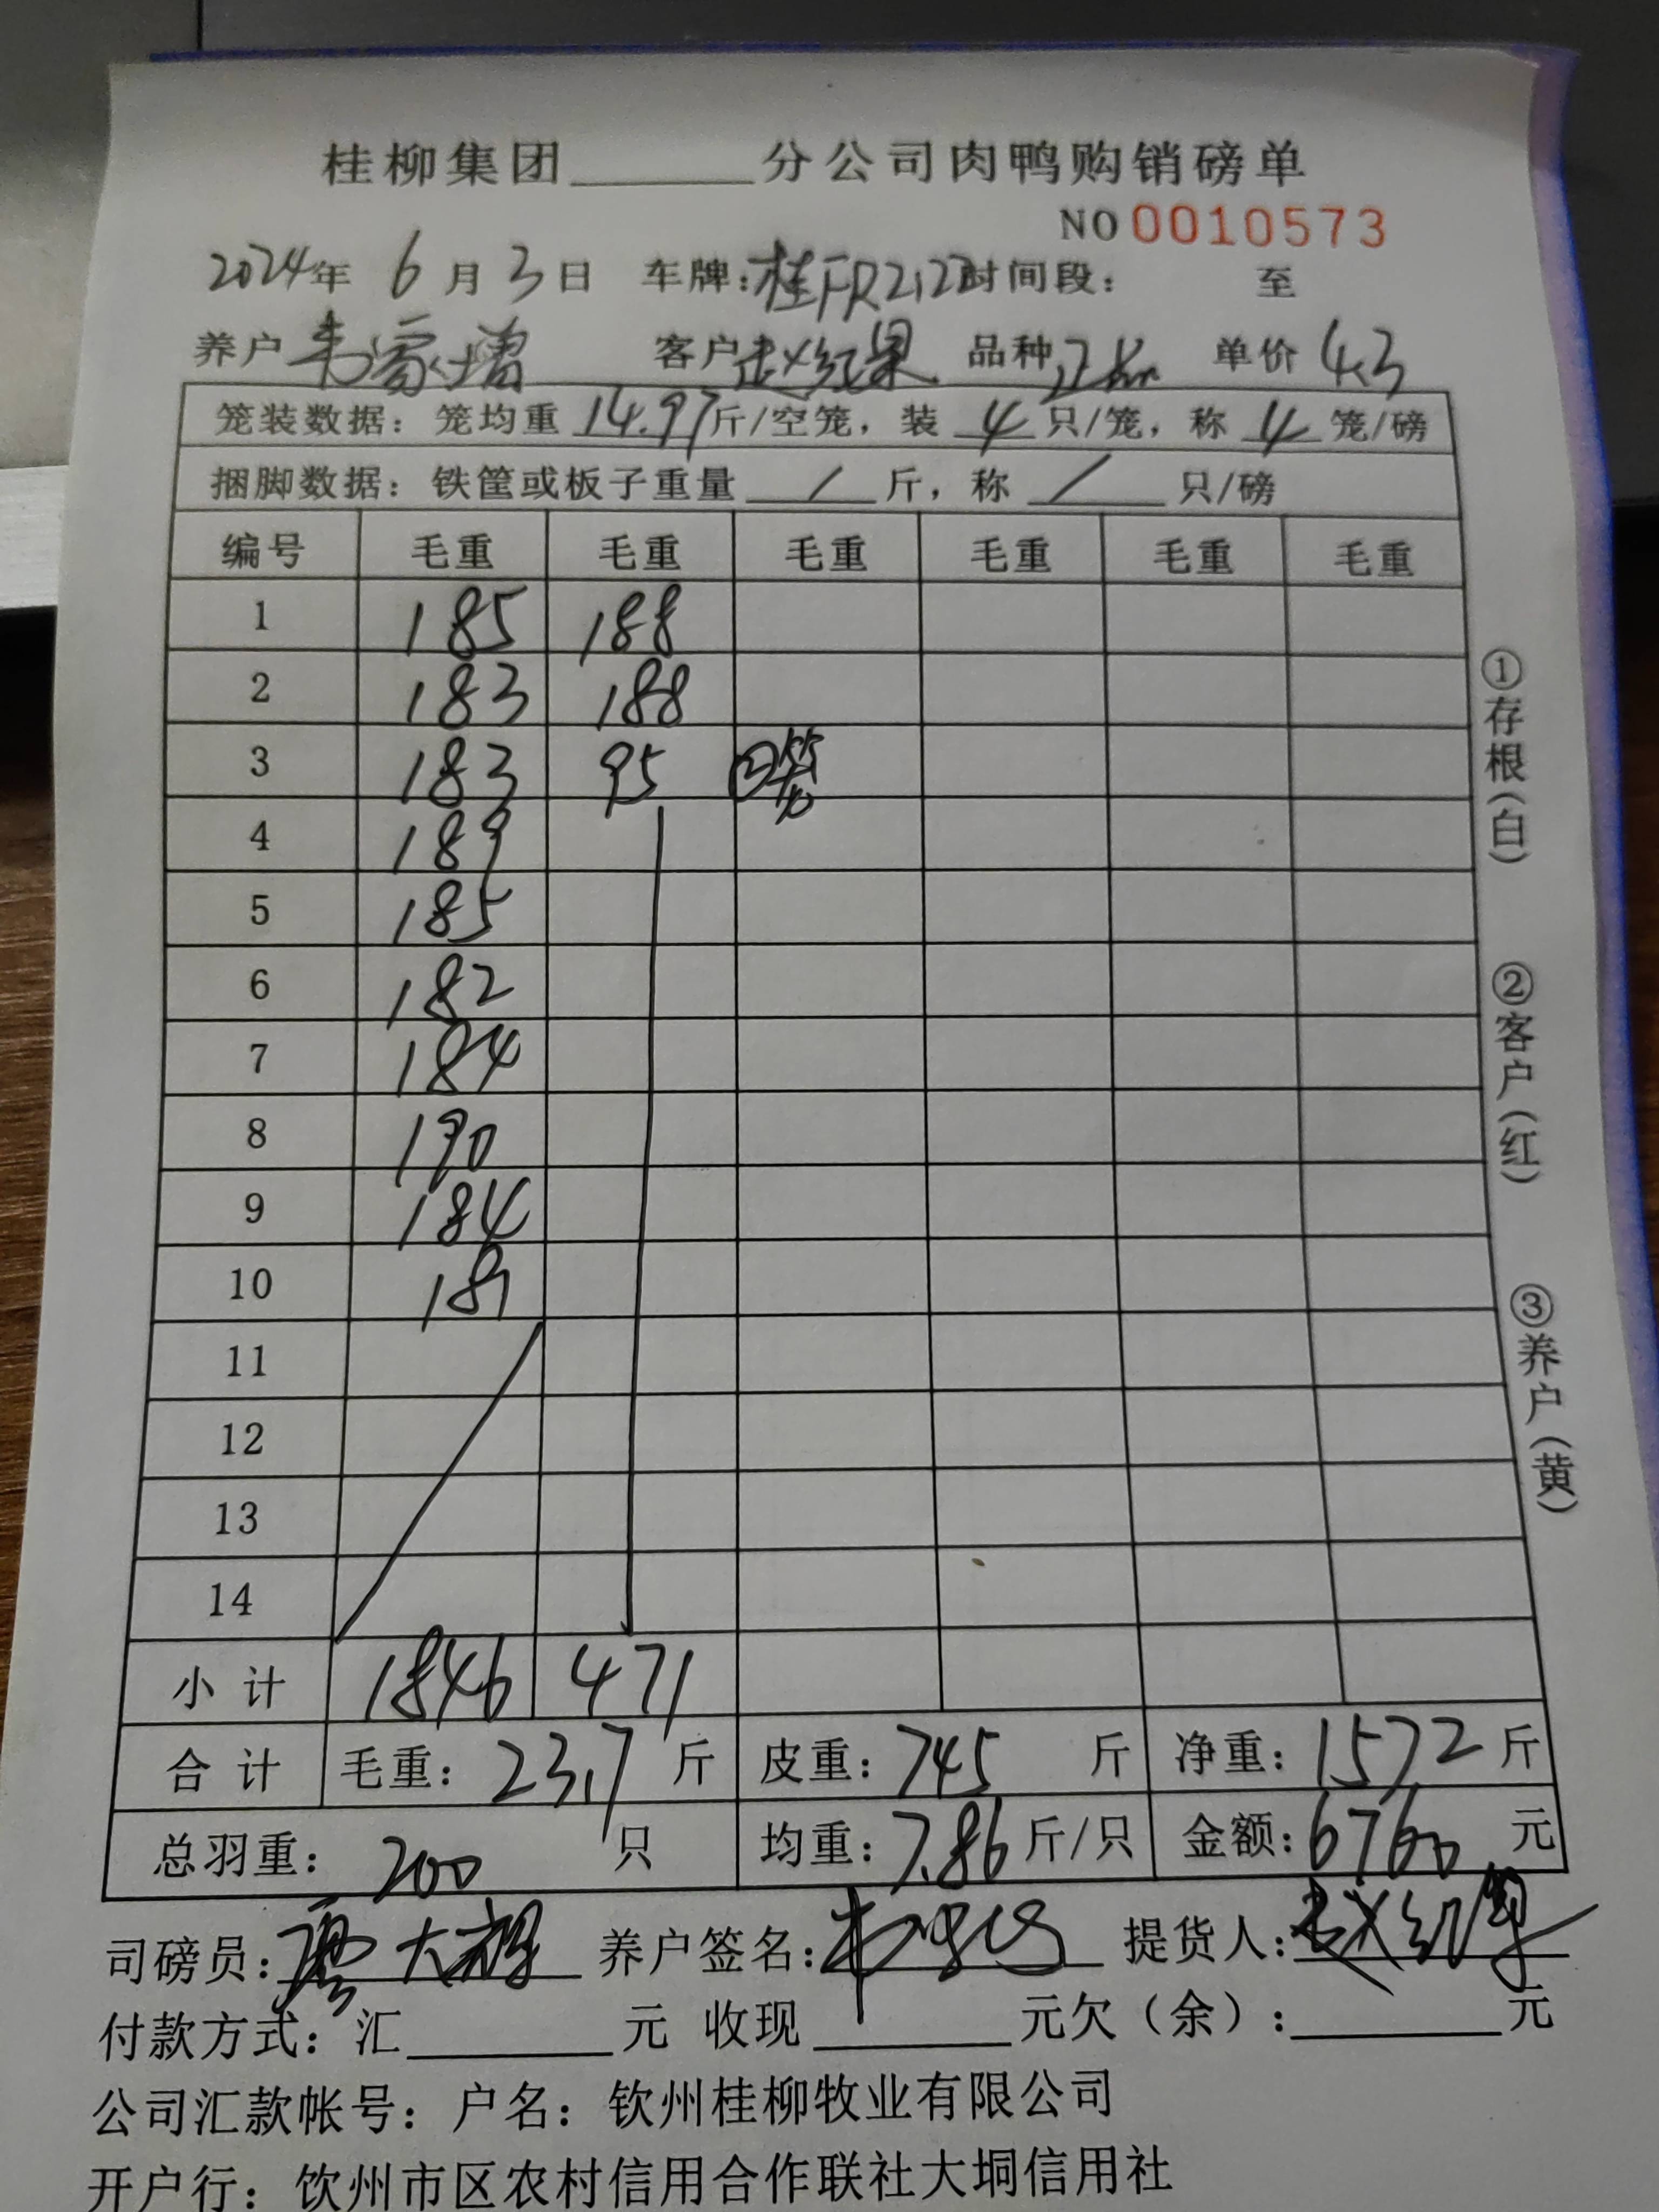 桂柳集团______分公司肉鸭购销磅单
NO 0010573
2024年 6月 3日 车牌:桂FR2127 时间段: 至
养户 韦家增 客户 赵红果 品种 正品 单价 4.3
笼装数据: 笼均重 14.97 斤/空笼, 装 4 只/笼, 称 4 笼/磅
捆脚数据: 铁筐或板子重量 / 斤, 称 / 只/磅
编号 毛重 毛重 毛重 毛重 毛重 毛重
1 185 188
2 183 188
3 183 95 ②笼
4 189
5 185
6 182
7 184
8 190
9 184
10 181
11
12
13
14
小计 1846 471
合计 毛重: 2317 斤 皮重: 745 斤 净重: 1572 斤
总羽重: 200 只 均重: 7.86 斤/只 金额: 6760 元
司磅员: 养户签名: 提货人:
付款方式: 汇______元 收现______元欠(余):______元
公司汇款帐号: 户名: 钦州桂柳牧业有限公司
开户行: 钦州市区农村信用合作联社大垌信用社
①存根(白)
②客户(红)
③养户(黄)